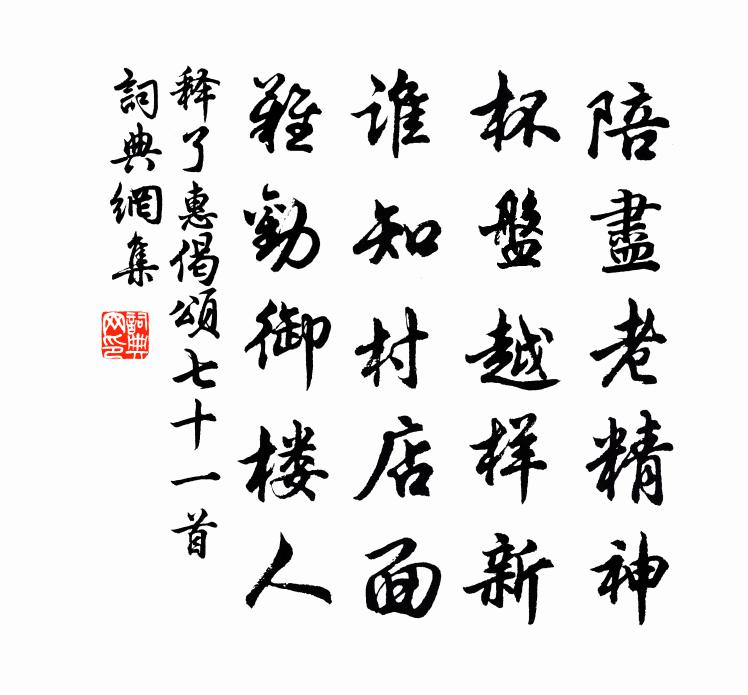 陪盡老精神
杯盤越样新
谁知村店面
難勸御楼人
释了惠偈頌七十一首
詞典網集
詞典
网印